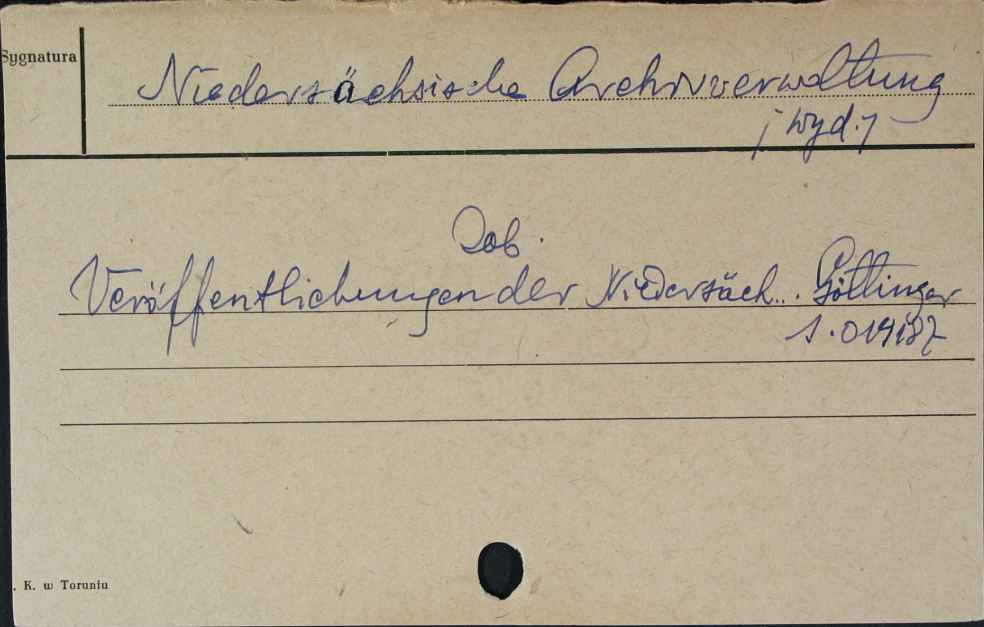 Sygnatura
Niedersächsische Archivverwaltung
/wyd./
Zob.
Veröffentlichungen der Niedersäch... Göttingen
1.019187
. K. w Toruniu